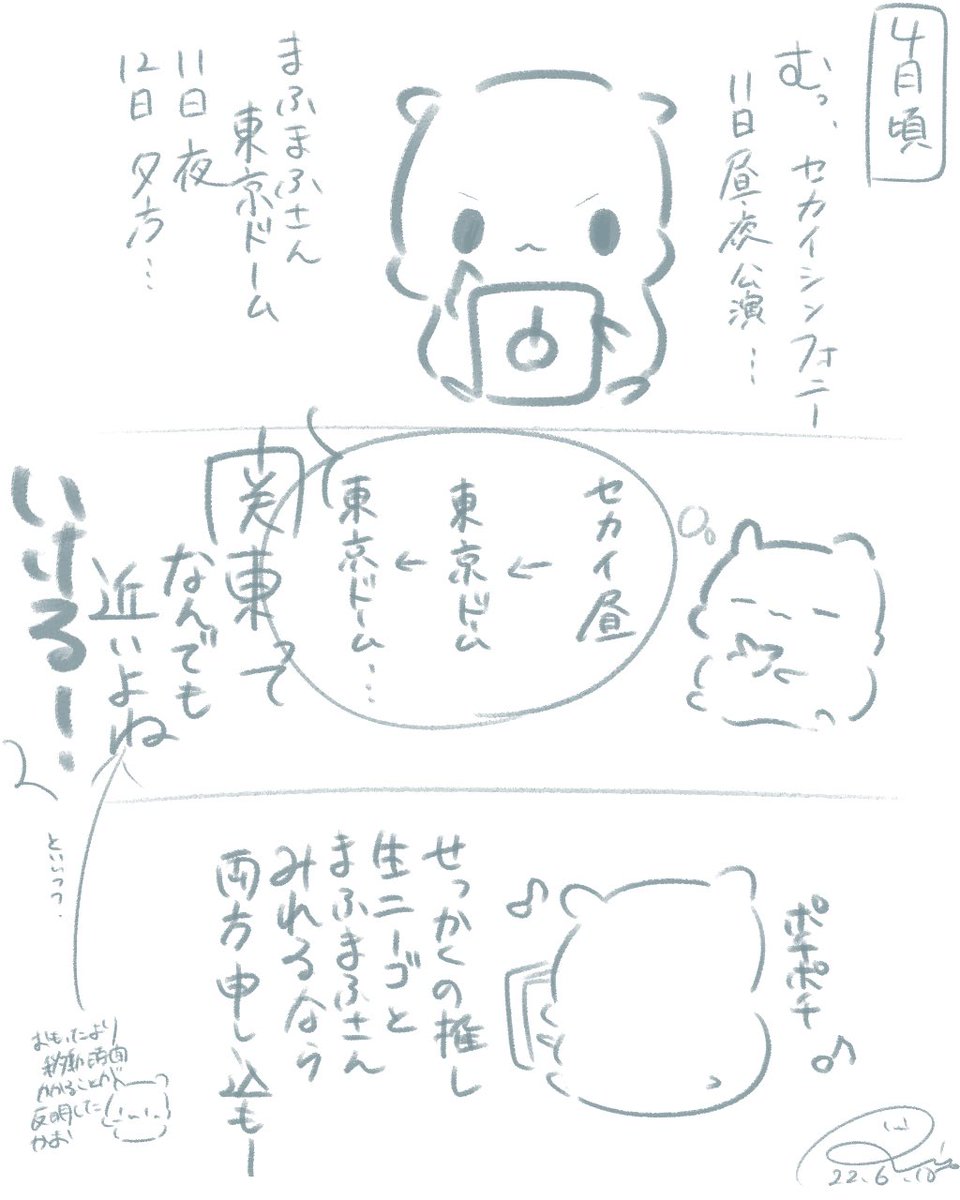 4月頃
むっ、セカイシンフォニー
11日昼夜公演…
まふまふさん
東京ドーム
11日 夜
12日 夕方…
セカイ昼
←
東京ドーム
←
東京ドーム…
関東って
なんでも
近いよね
いけるー!
といいつつ、
ポチポチ
せっかくの推し
生ニーゴと
まふまふさん
みれるなら
両方申し込もー
おもったより
移動時間
かかることが
判明した
かお
22.6.10